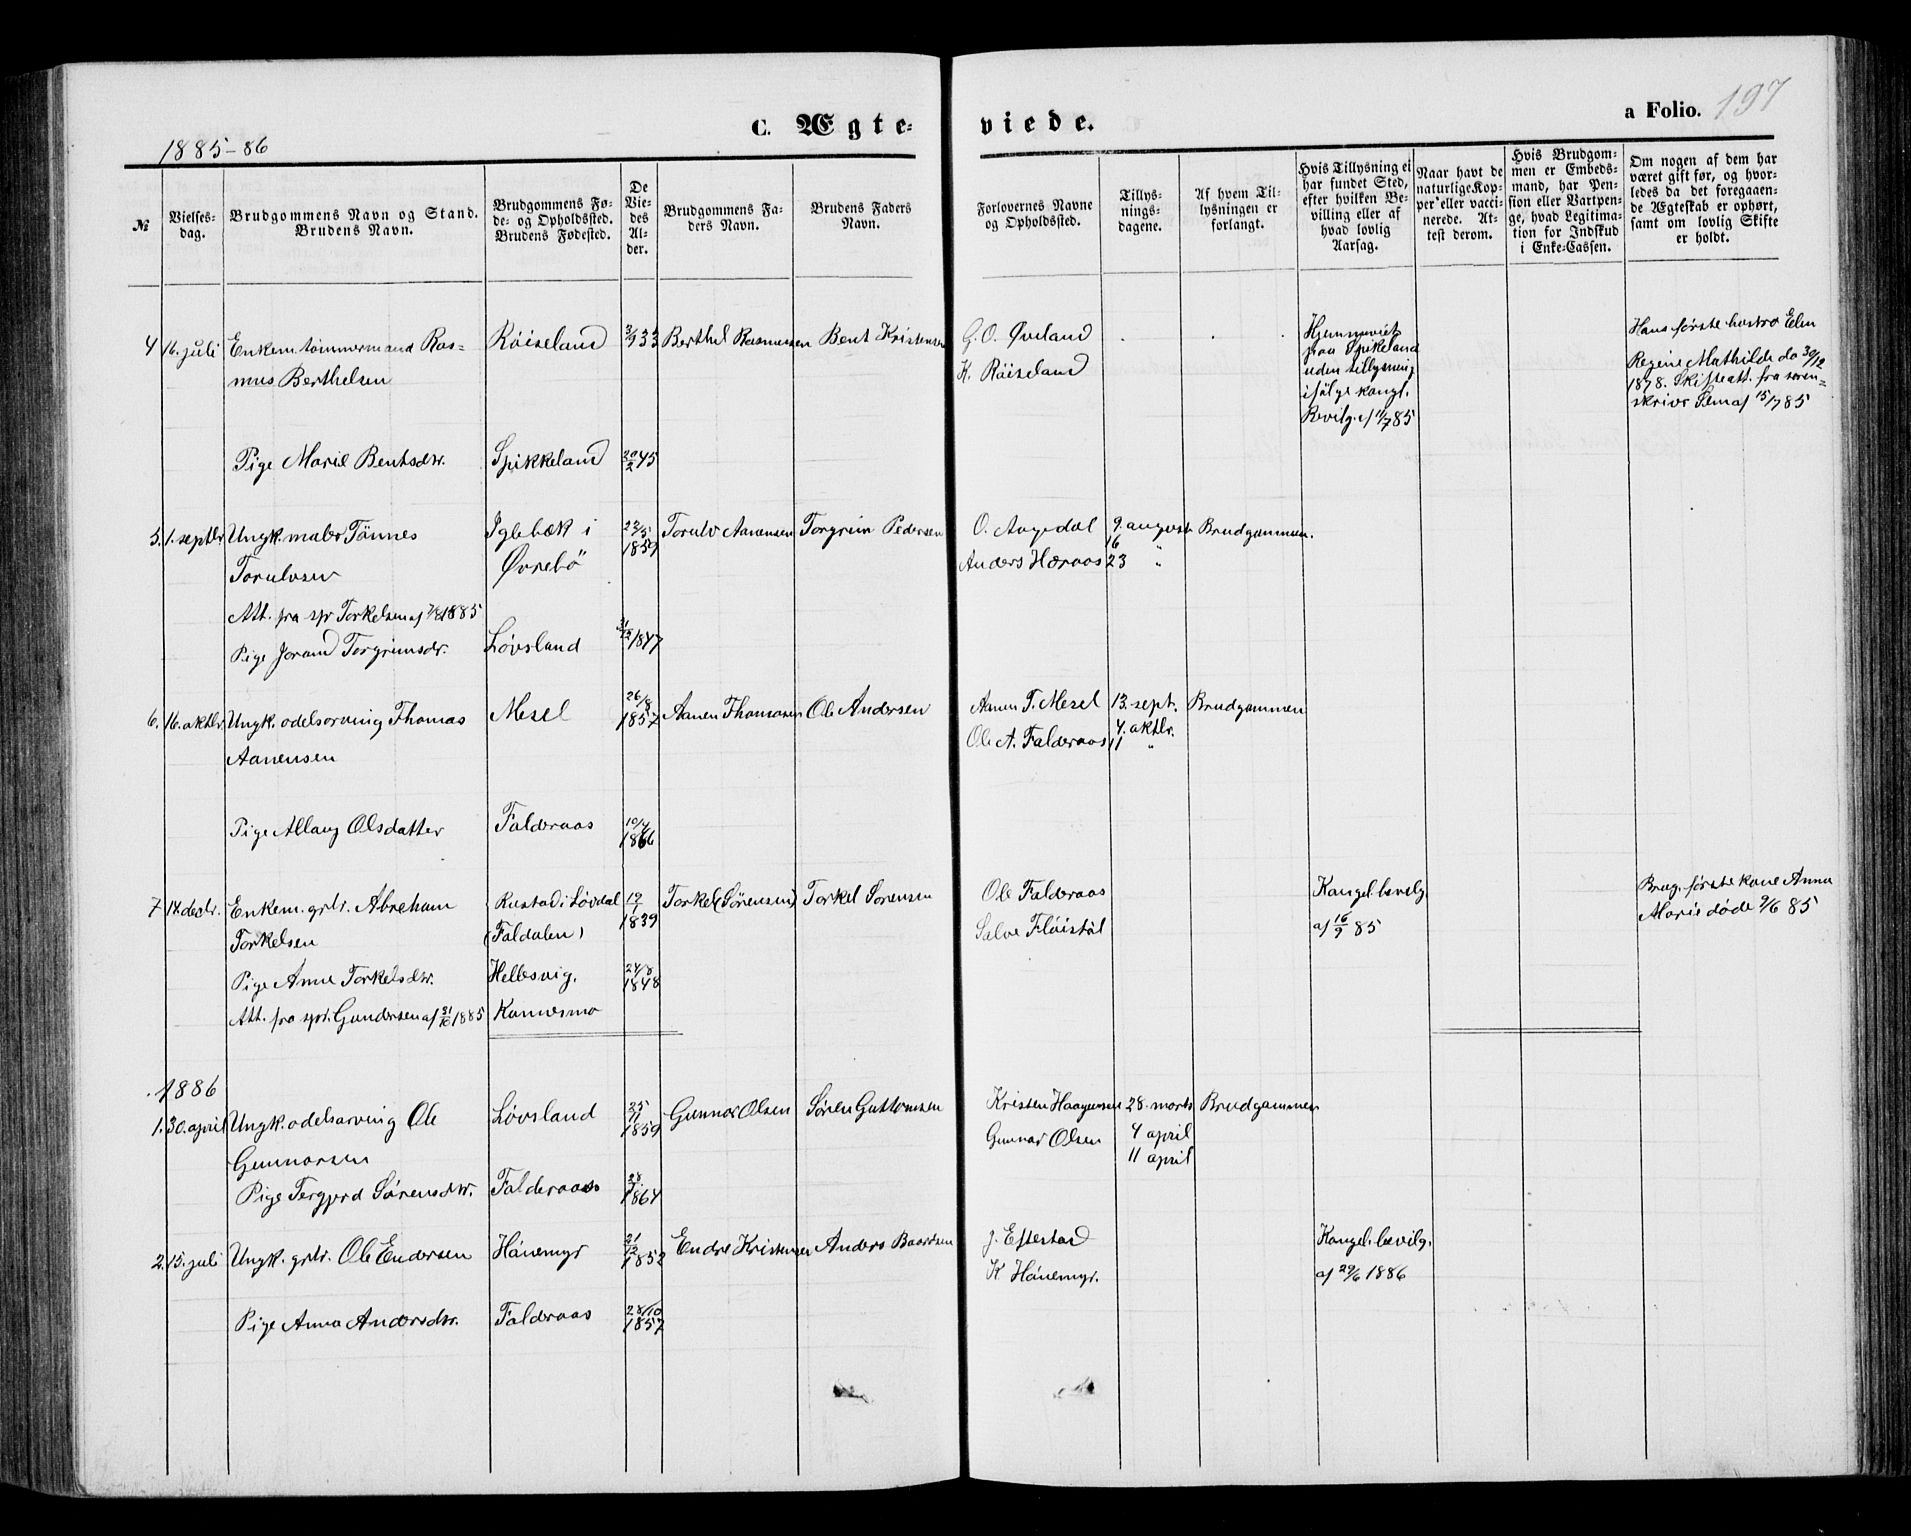 1885-86
C. Ægte-
viede.
a Folio.
197
№
Vielses-
dag.
Brudgommens Navn og Stand.
Brudens Navn.
Brudgommens Fø-
de- og Opholdssted.
Brudens Fødested.
De
Vie-
des
Al-
der.
Brudgommens Fa-
ders Navn.
Brudens Faders
Navn.
Forlovernes Navne
og Opholdssted.
Tillys-
nings-
dagene.
Af hvem Til-
lysningen er
forlangt.
Hvis Tillysning ei
har fundet Sted,
efter hvilken Be-
villing eller af
hvad lovlig
Aarsag.
Naar havt de
naturlige Kop-
per eller vacci-
nerede. At-
test derom.
Hvis Brudgom-
men er Embeds-
mand, har Pen-
sion eller Vartpen-
ge, hvad Legitima-
tion for Indskud
i Enke-Cassen.
Om nogen af dem har
været gift før, og hvor-
ledes da det foregaaen-
de Ægteskab er ophørt,
samt om lovlig Skifte
er holdt.
4 16. juli Enkem. tømmermand Ras-
mus Berthelsen
Røiseland
3/9 33
Berthel Rasmussen
Bent Kristensen
G. O. Øveland
K. Røiseland
Hjemmeviet
paa Spikeland
uden tillysning
ifølge kongl.
Bevilg. af 11/7 85
Hans første hustro Elen
Regine Mathilde do 30/12
1878. Skifteatt. fra soren-
skriver af 15/7 85
Pige Marie Bentsdtr.
Spikkeland
20/2 45
5. 1. septbr. Ungk. maler Tønnes
Torulvsen
Att. fra spr Torkelsen af 1885
Iglebæk i
Øvrebö
22/5
1859
Torulv Aanensen
Torgrim Pedersen
O. Aagedal
Anders Hæraas
9. august
16
23 "
Brudgommen.
Pige Jorand Torgrimsdr.
Løvsland
31/12 1847
6. 16. oktbr. Ungk. odelsarving Thomas
Aanensen
Mesel
26/8
1857
Aanen Thomasen
Ole Andersen
Aanen T. Mesel
Ole A. Falderaas
13. sept.
4. oktbr.
11 "
Brudgommen
Pige Allaug Olsdatter
Falderaas
10/4
1866
7 14. decbr. Enkem. grbr. Abreham
Torkelsen
Rustad i Løvdal
(Faldalen)
1839
Torkel (Sørensen)
Torkel Sørensen
Ole Falderaas
Salve Fløistøl
Kongel. bevilg
af 16/9 85
Brug. første kone Anna
Marie døde 9/6 85
Pige Anne Torkelsdtr.
Att. fra spr. Gundersen af 31/10 1885
Hellesvig.
24/8
1848
1886
1. 30. april Ungk. odelsarving Ole
Gunnarsen
Løvsland
25/11
1859
Gunnar Olsen
Søren Guttormsen
Kristen Haagensen
Gunnar Olsen
28. marts
4 april
11 april
Brudgommen
Pige Tergjerd Sørensdtr.
Falderaas
1864
2. 15. juli Ungk. grbr. Ole Endersen
Hånemyr
21/12
1852
Endre Kristensen
Anders Baardsen
J. Eftestad
K Hånemyr.
Kongel. bevilg.
af 29/6 1886
Pige Anna Andersdtr.
Falderaas
28/10
1857